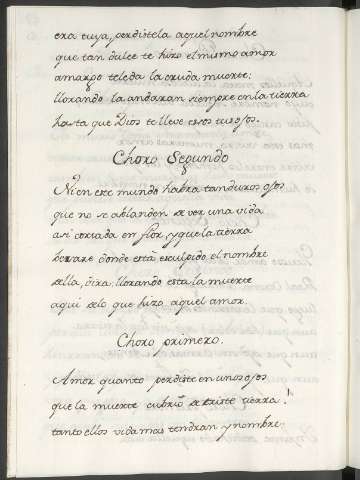 era tuya, perdistela aquel nombre
que tan dulce te hizo el mismo amor
amargo teleda la cruda muerte;
llorando la andaran siempre en la tierra
hasta que Dios te lleve essos tus ojos.
Choro Segundo
Ni en ese mundo habra tan duros ojos
que no se ablanden de ver una vida
asi cortada en flor, y que la tierra
besare donde está esculpido el nombre
della, dira: llorando está la muerte
aqui delo que hizo aquel amor.
Choro primero.
Amor quanto perdiste en unos ojos
que la muerte cubrió de triste tierra!
tanto ellos vida mas tendran y nombre: